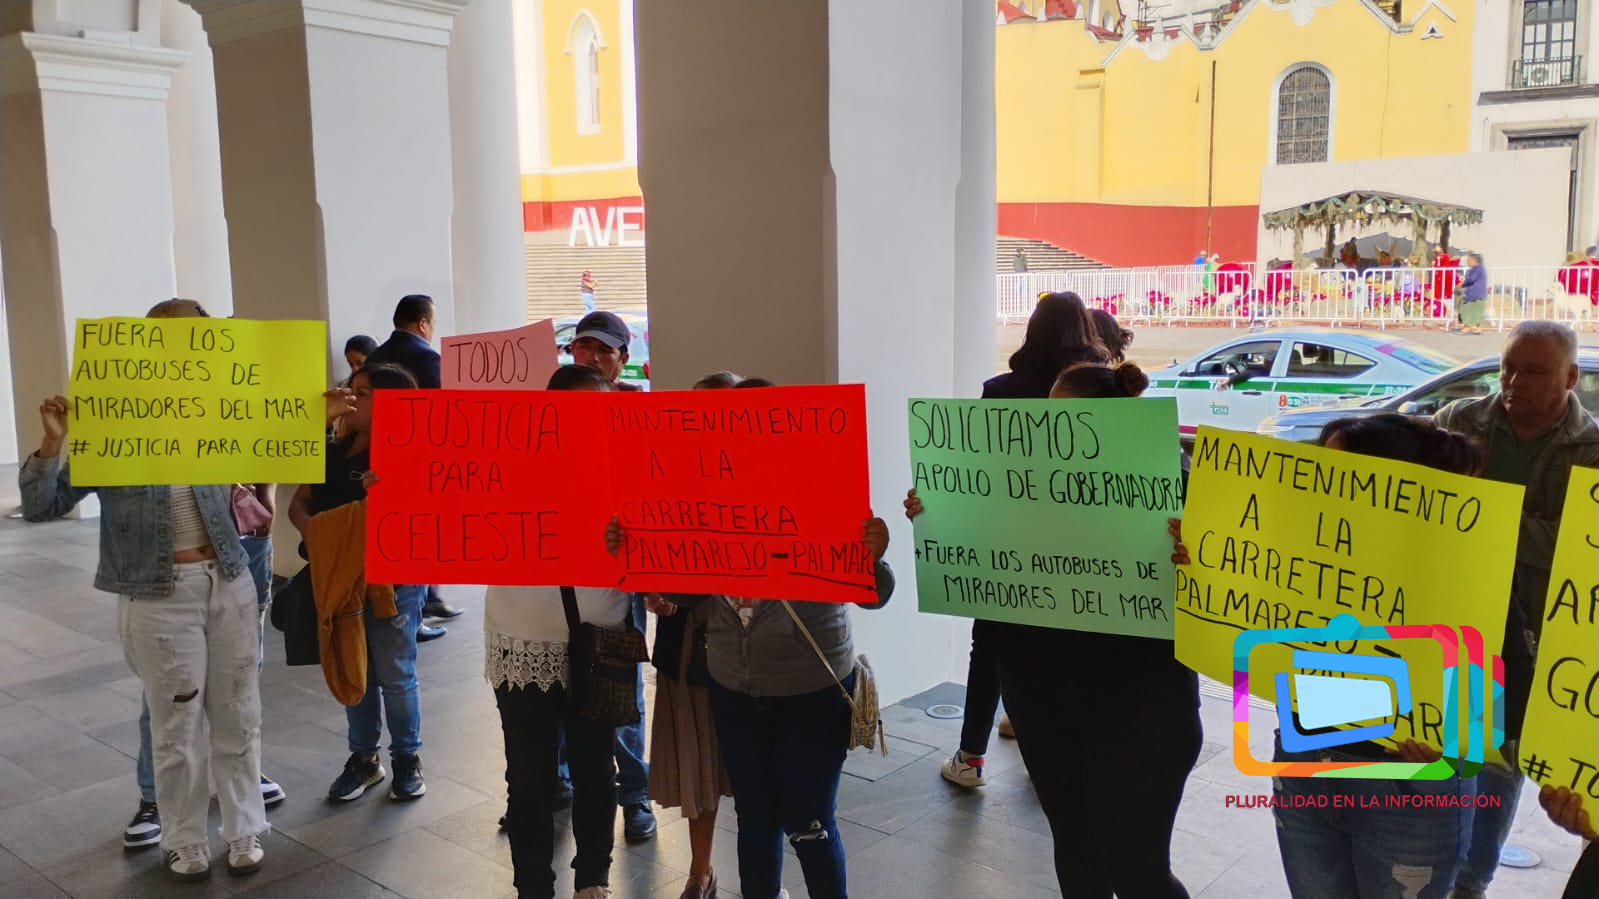 AVE
FUERA LOS
AUTOBUSES DE
MIRADORES DEL MAR
# JUSTICIA PARA CELESTE
TODOS
JUSTICIA
PARA
CELESTE
MANTENIMIENTO
A LA
CARRETERA
PALMAREJO-PALMAR
SOLICITAMOS
APOLLO DE GOBERNADORA
+FUERA LOS AUTOBUSES DE
MIRADORES DEL MAR
MANTENIMIENTO
A LA
CARRETERA
PALMAREJO -
# TO
PLURALIDAD EN LA INFORMACIÓN